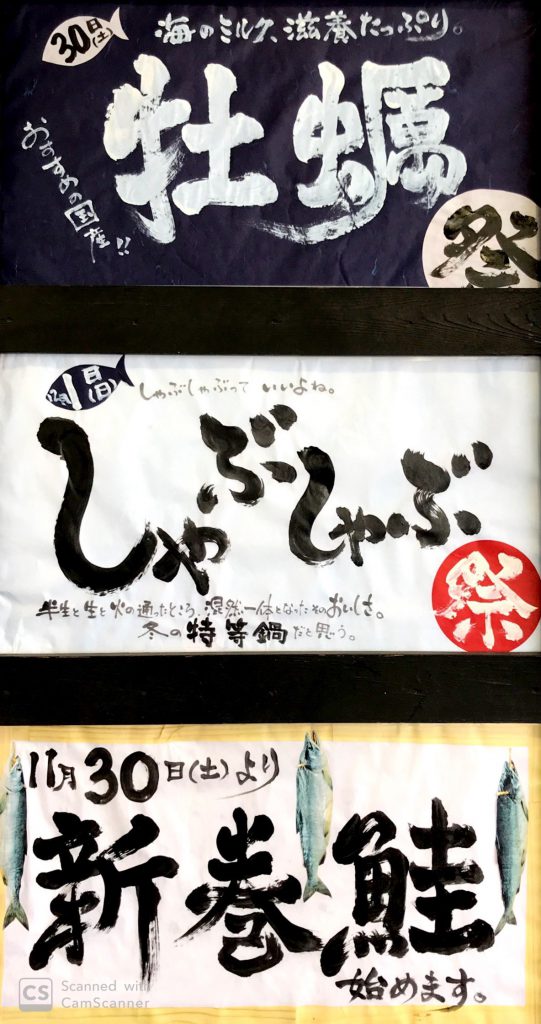 30日(土)
海のミルク、滋養たっぷり。
牡蠣
おすすめの国産!!
祭
12月1日(日)
しゃぶしゃぶって いいよね。
しゃぶしゃぶ
祭
半生と生と火の通ったところ、渾然一体となったそのおいしさ。
冬の特等鍋だと思う。
11月30日(土)より
新巻鮭
始めます。
CS Scanned with
CamScanner